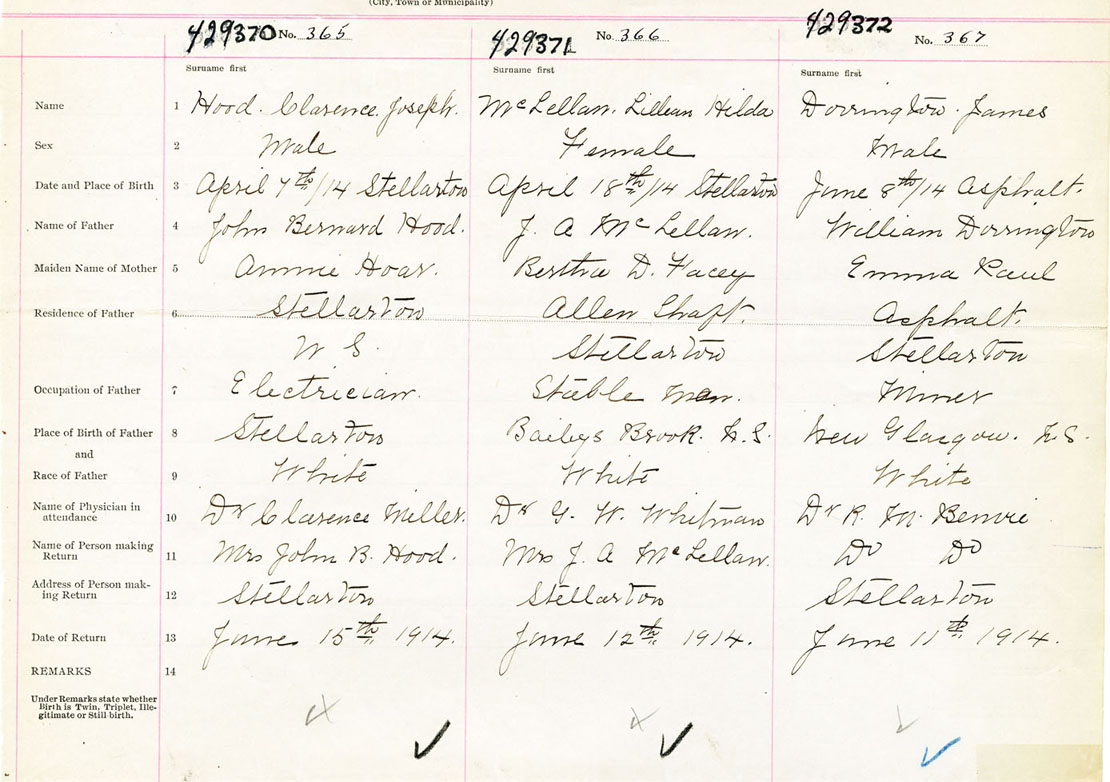 (City, Town or Municipality)
429370 No. 365 429371 No. 366 429372 No. 367
Surname first Surname first Surname first
Name 1 Hood. Clarence Joseph. McLellan. Lillian Hilda Dorrington. James
Sex 2 Male Female Male
Date and Place of Birth 3 April 7th/14 Stellarton April 18th/14 Stellarton June 8th/14 Asphalt.
Name of Father 4 John Bernard Hood. J. A McLellan. William Dorrington
Maiden Name of Mother 5 Annie Hoar. Bertha D. Facey Emma Paul
Residence of Father 6 Stellarton Allen Shaft. Asphalt.
Stellarton Stellarton
Occupation of Father 7 Electrician. Stable Man. Miner
Place of Birth of Father 8 Stellarton Baileys Brook. N.S. New Glasgow. N.S.
and
Race of Father 9 White White White
Name of Physician in
attendance 10 Dr Clarence Miller. Dr G. W. Whitman Dr R. M. Benvie
Name of Person making
Return 11 Mrs John B. Hood. Mrs J. A McLellan. Do Do
Address of Person mak-
ing Return 12 Stellarton Stellarton Stellarton
Date of Return 13 June 15th 1914. June 12th 1914. June 11th 1914.
REMARKS 14
Under Remarks state whether
Birth is Twin, Triplet, Ille-
gitimate or Still-birth.